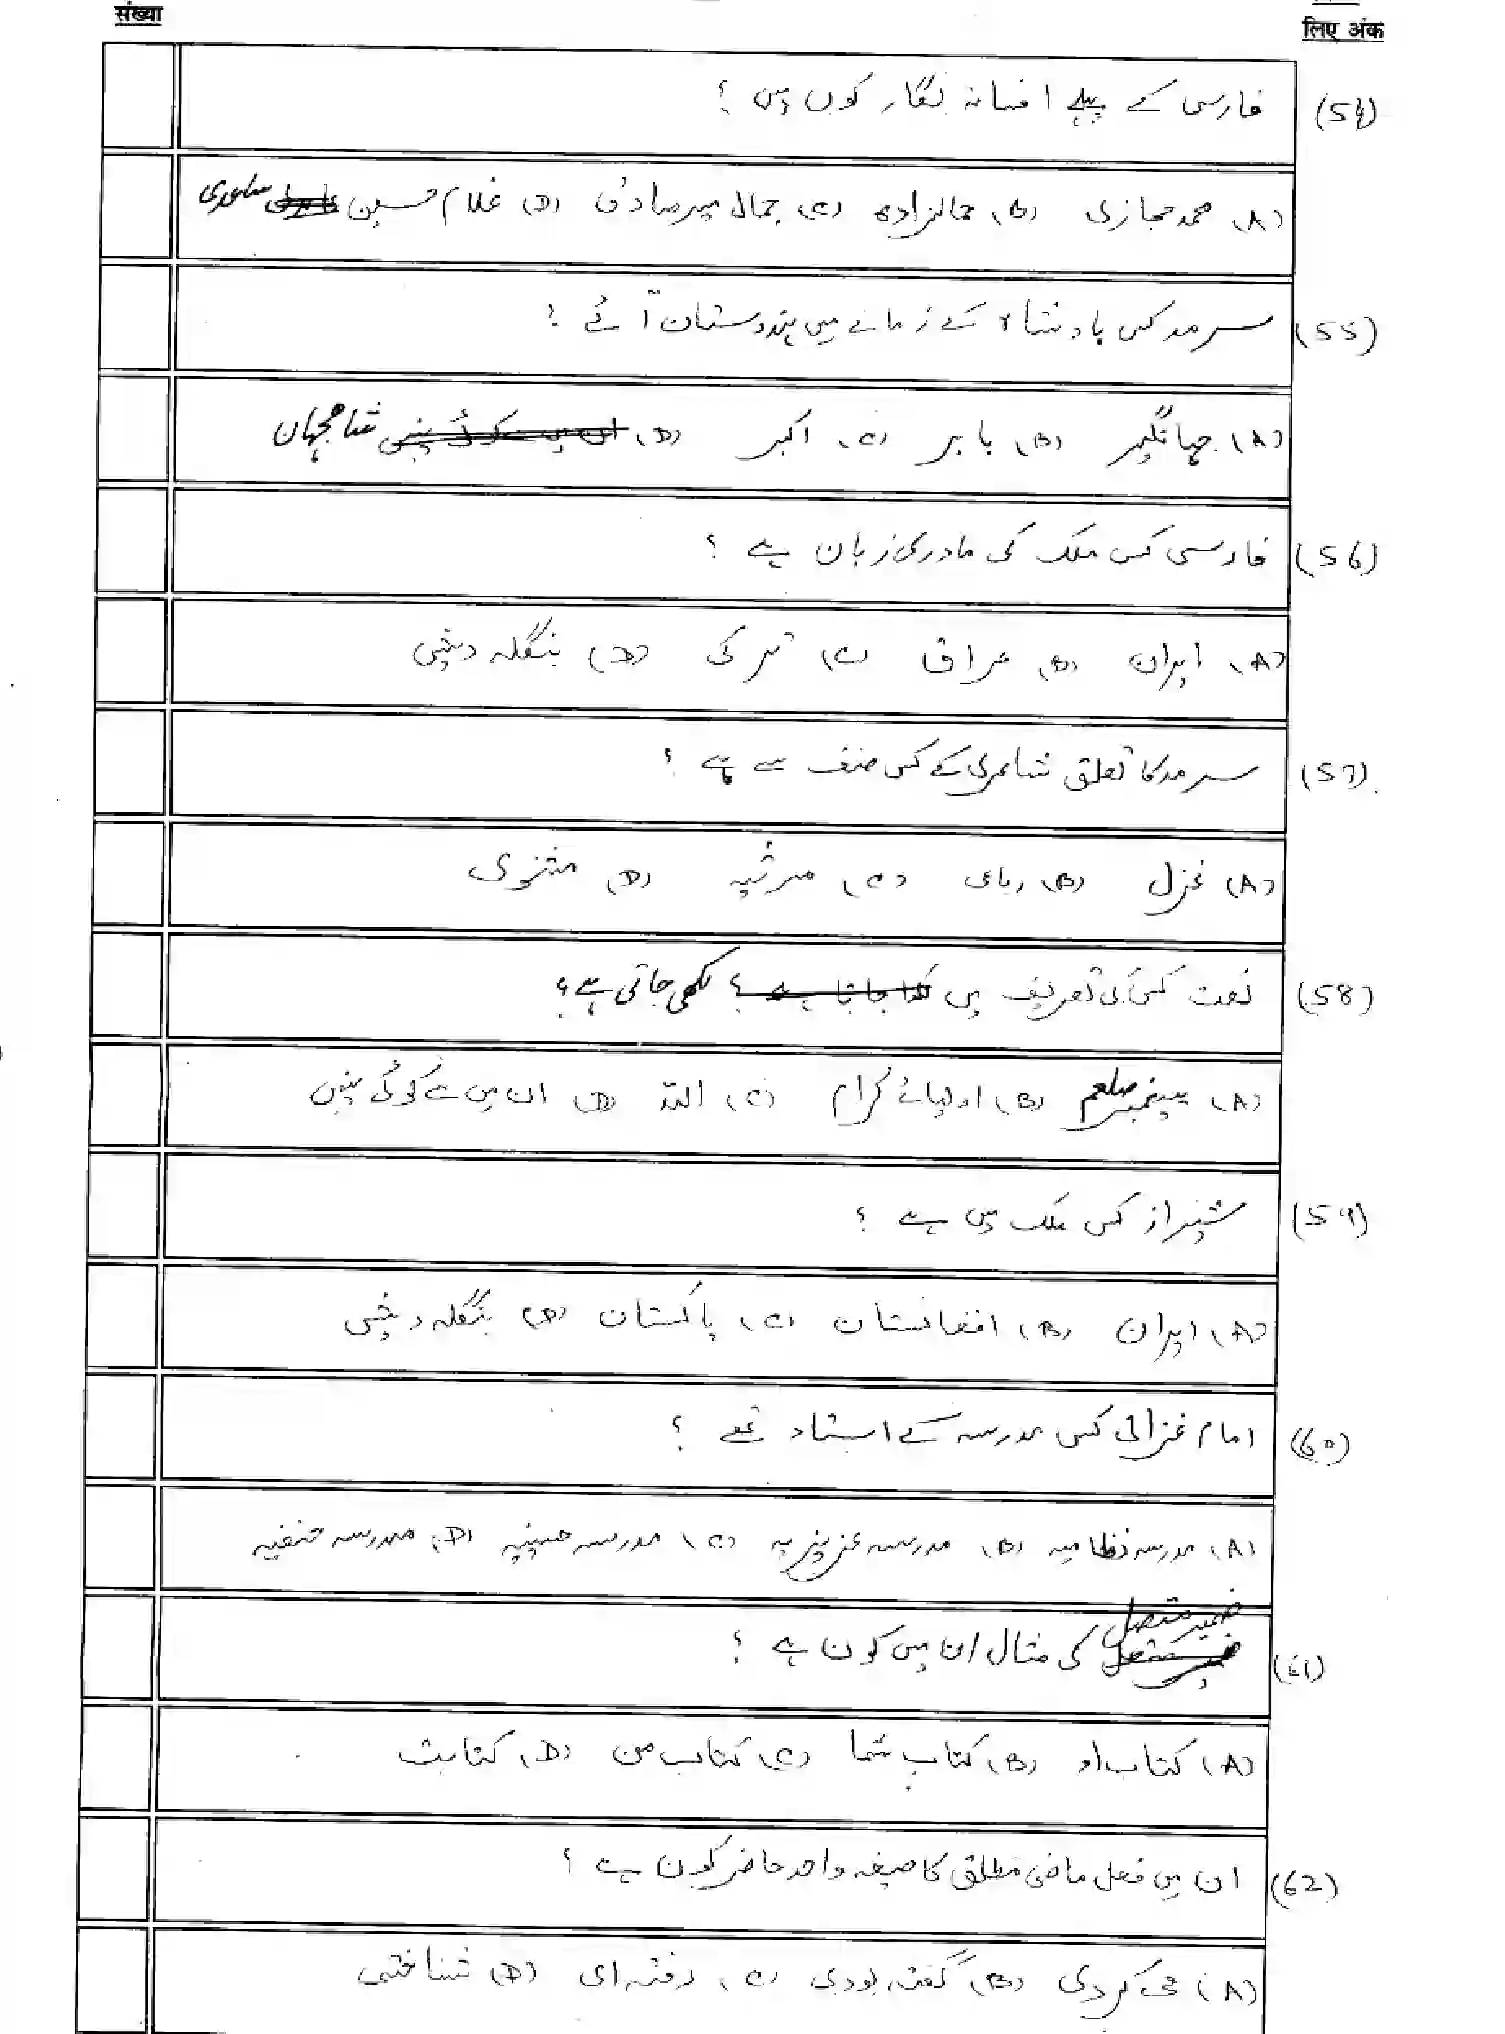 संख्या
लिए अंक
(54) فارسی کے پہلے افسانہ نگار کون ہیں ؟
(A) محمد حجازی (B) جمالزادہ (C) جمال میر صادقی (D) غلام حسین ساعدی
(55) سرمد کس بادشاہ کے زمانے میں ہندوستان آئے ؟
(A) جہانگیر (B) بابر (C) اکبر (D) ان میں سے کوئی نہیں شاہجہاں
(56) فارسی کس ملک کی مادری زبان ہے ؟
(A) ایران (B) عراق (C) ترکی (D) بنگلہ دیش
(57) سرمد کا تعلق شاعری کے کس صنف سے ہے ؟
(A) غزل (B) رباعی (C) مرثیہ (D) مثنوی
(58) نعت کس کی تعریف میں لکھا جاتا ہے ؟ لکھی جاتی ہے ؟
(A) پیغمبر صلعم (B) اولیائے کرام (C) اللہ (D) ان میں سے کوئی نہیں
(59) شیراز کس ملک میں ہے ؟
(A) ایران (B) افغانستان (C) پاکستان (D) بنگلہ دیش
(60) امام غزالی کس مدرسہ کے استاد تھے ؟
(A) مدرسہ نظامیہ (B) مدرسہ عزیزیہ (C) مدرسہ حسینیہ (D) مدرسہ حنفیہ
(61) ضمیر متصل کی مثال ان میں کون ہے ؟
(A) کتاب او (B) کتاب شما (C) کتاب من (D) کتابت
(62) ان میں فعل ماضی مطلق کا صیغہ واحد حاضر کون ہے ؟
(A) می کردی (B) گفتہ بودی (C) رفتہ ای (D) شناختی